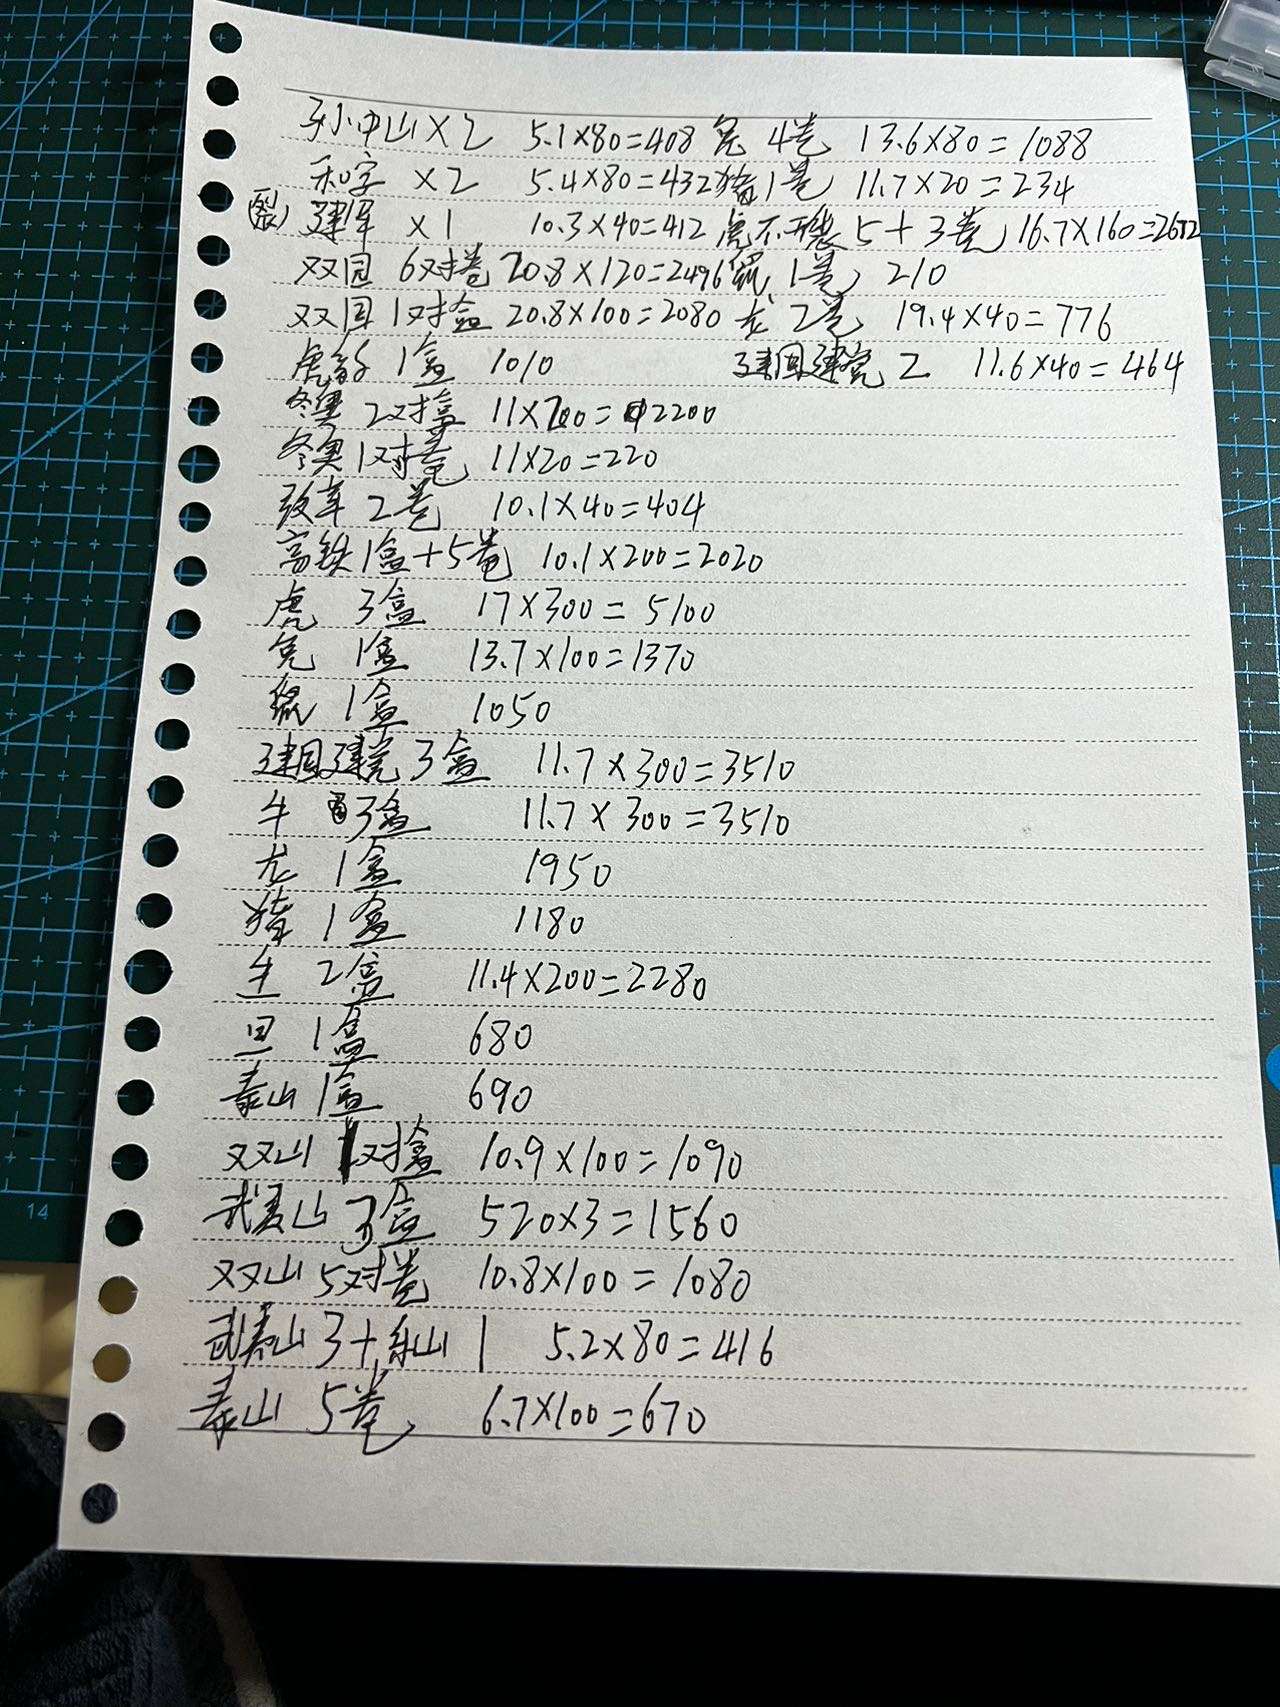 孙中山×2 5.1×80=408 兔 4卷 13.6×80=1088
和字 ×2 5.4×80=432 猪1卷 11.7×20=234
(裂) 建军 ×1 10.3×40=412 虎不裂 5+3卷 16.7×160=2672
双园 6对卷 20.8×120=2496 鼠 1卷 210
双园 1对盒 20.8×100=2080 龙 2卷 19.4×40=776
虎 1盒 1010 建国建党 2 11.6×40=464
冬奥 2对盒 11×200=2200
冬奥1对卷 11×20=220
改革 2卷 10.1×40=404
高铁1盒+5卷 10.1×200=2020
虎 3盒 17×300=5100
兔 1盒 13.7×100=1370
鼠 1盒 1050
建国建党 3盒 11.7×300=3510
牛 3盒 11.7×300=3510
龙 1盒 1950
猪 1盒 1180
羊 2盒 11.4×200=2280
1盒 680
泰山 1盒 690
双山 1对盒 10.9×100=1090
武夷山 3盒 520×3=1560
双山 5对卷 10.8×100=1080
武夷山 3+乐山 1 5.2×80=416
泰山 5卷 6.7×100=670
14